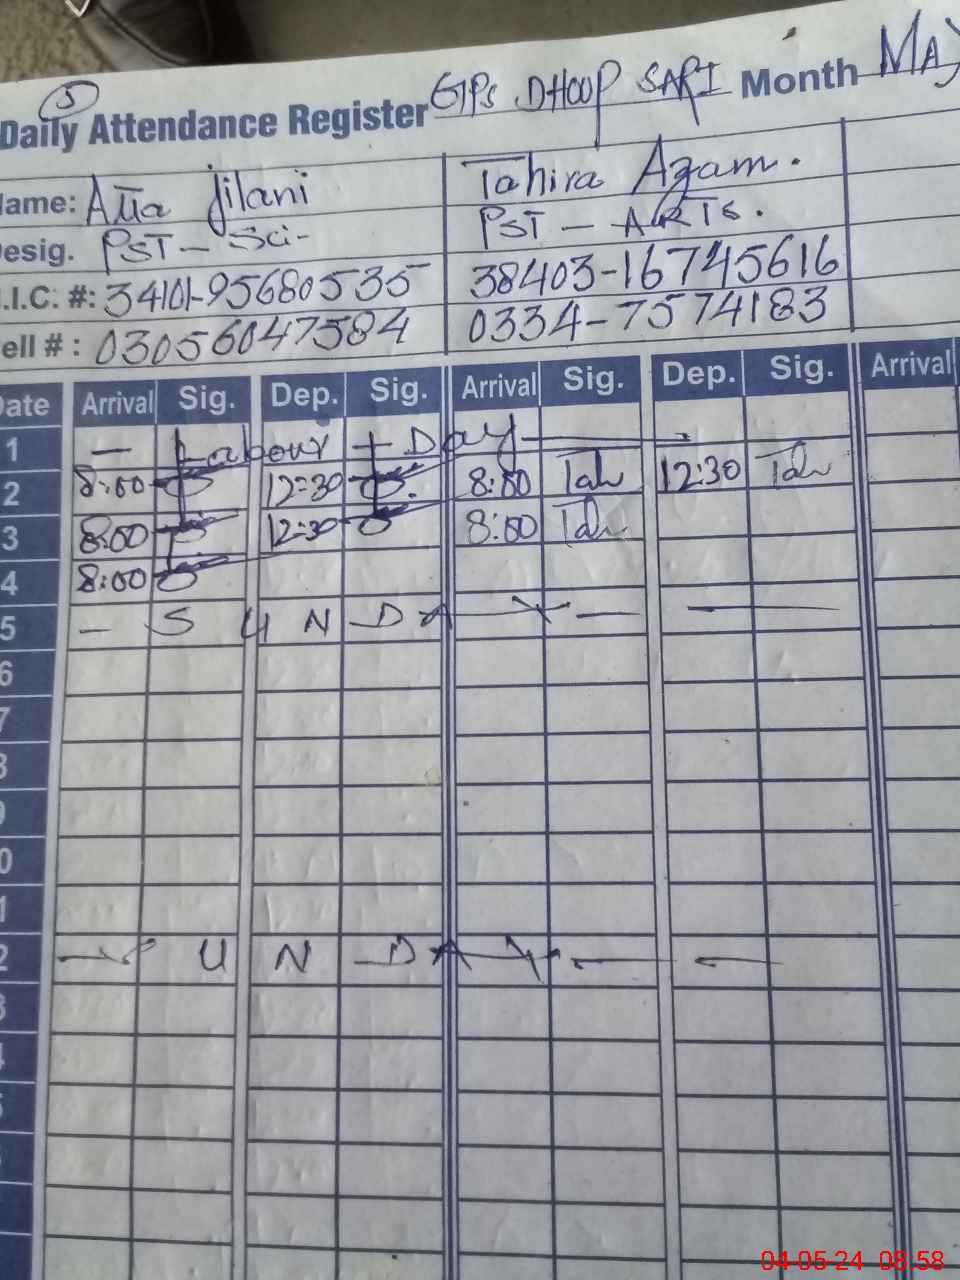 5
Daily Attendance Register GPS DHOOP SARI Month MAY
Name: Atta Jilani Tahira Azam.
Desig. PST - Sci- PST - ARTS.
.I.C. #: 34101-95680535 38403-16745616
ell # : 03056047584 0334-7574183
Date Arrival Sig. Dep. Sig. Arrival Sig. Dep. Sig. Arrival
1 — Labour Day —
2 8:00 12:30 8:00 Tah 12:30 Tah
3 8:00 12:30 8:00 Tah
4 8:00
5 — S U N D A Y — —
6
7
8
9
0
1
2 — S U N D A Y — —
3
4
5
04-05-24 08:58